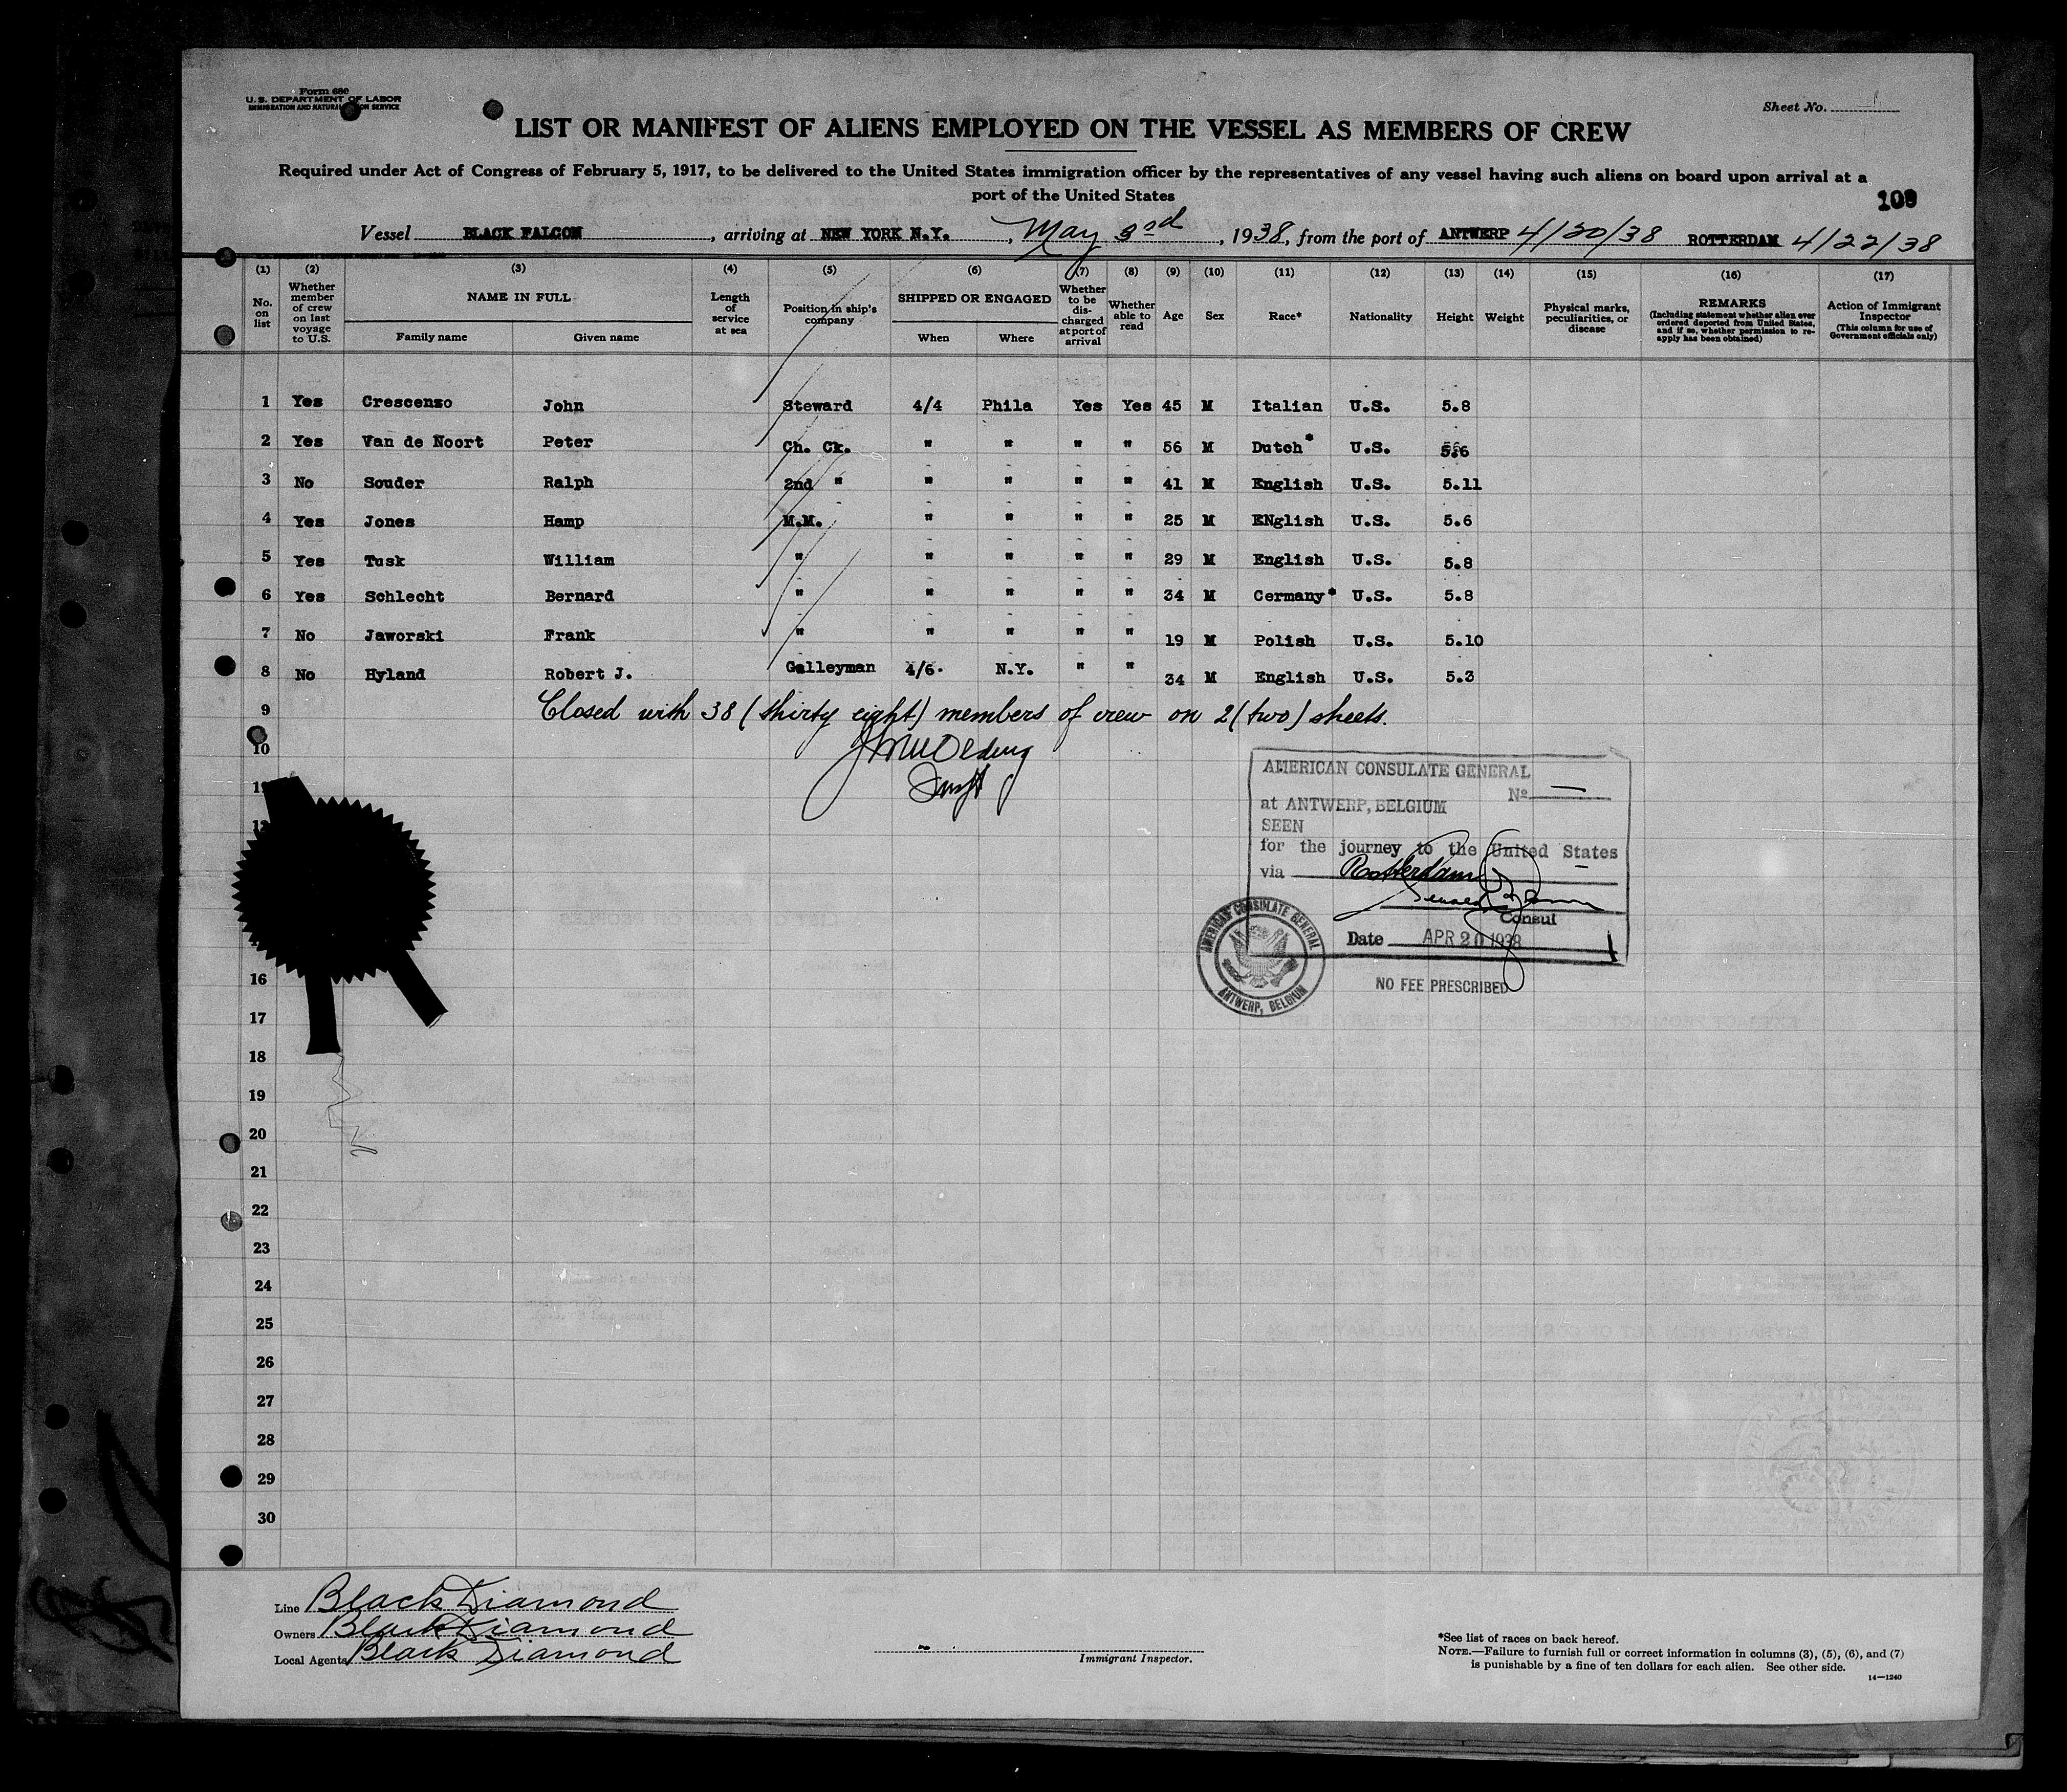 Form 680
U. S. DEPARTMENT OF LABOR
IMMIGRATION AND NATURALIZATION SERVICE
Sheet No.
LIST OR MANIFEST OF ALIENS EMPLOYED ON THE VESSEL AS MEMBERS OF CREW
Required under Act of Congress of February 5, 1917, to be delivered to the United States immigration officer by the representatives of any vessel having such aliens on board upon arrival at a
port of the United States
109
Vessel BLACK FALCON, arriving at NEW YORK N.Y., May 3rd, 1938, from the port of ANTWERP 4/20/38 ROTTERDAM 4/22/38
(1) (2) (3) (4) (5) (6) (7) (8) (9) (10) (11) (12) (13) (14) (15) (16) (17)
No. on list
Whether member of crew on last voyage to U.S.
NAME IN FULL
Family name
Given name
Length of service at sea
Position in ship's company
SHIPPED OR ENGAGED
When
Where
Whether to be discharged at port of arrival
Whether able to read
Age
Sex
Race*
Nationality
Height
Weight
Physical marks, peculiarities, or disease
REMARKS
(Including statement whether alien ever ordered deported from United States, and if so, whether permission to reapply has been obtained)
Action of Immigrant Inspector
(This column for use of Government officials only)
1 Yes Crescenzo John Steward 4/4 Phila Yes Yes 45 M Italian U.S. 5.8
2 Yes Van de Noort Peter Ch. Ck. " " " " 56 M Dutch* U.S. 5.6
3 No Souder Ralph 2nd " " " " " 41 M English U.S. 5.11
4 Yes Jones Hamp M.M. " " " " 25 M ENglish U.S. 5.6
5 Yes Tusk William " " " " " 29 M English U.S. 5.8
6 Yes Schlecht Bernard " " " " " 34 M Cermany* U.S. 5.8
7 No Jaworski Frank " " " " " 19 M Polish U.S. 5.10
8 No Hyland Robert J. Galleyman 4/6. N.Y. " " 34 M English U.S. 5.3
9 Closed with 38 (thirty eight) members of crew on 2 (two) sheets.
10
AMERICAN CONSULATE GENERAL
No —
at ANTWERP, BELGIUM
SEEN
for the journey to the United States
via Rotterdam
Consul
Date APR 20 1938
NO FEE PRESCRIBED
AMERICAN CONSULATE GENERAL
ANTWERP, BELGIUM
16
17
18
19
20
21
22
23
24
25
26
27
28
29
30
Line Black Diamond
Owners Black Diamond
Local Agents Black Diamond
Immigrant Inspector.
*See list of races on back hereof.
NOTE.—Failure to furnish full or correct information in columns (3), (5), (6), and (7)
is punishable by a fine of ten dollars for each alien. See other side.
14—1240